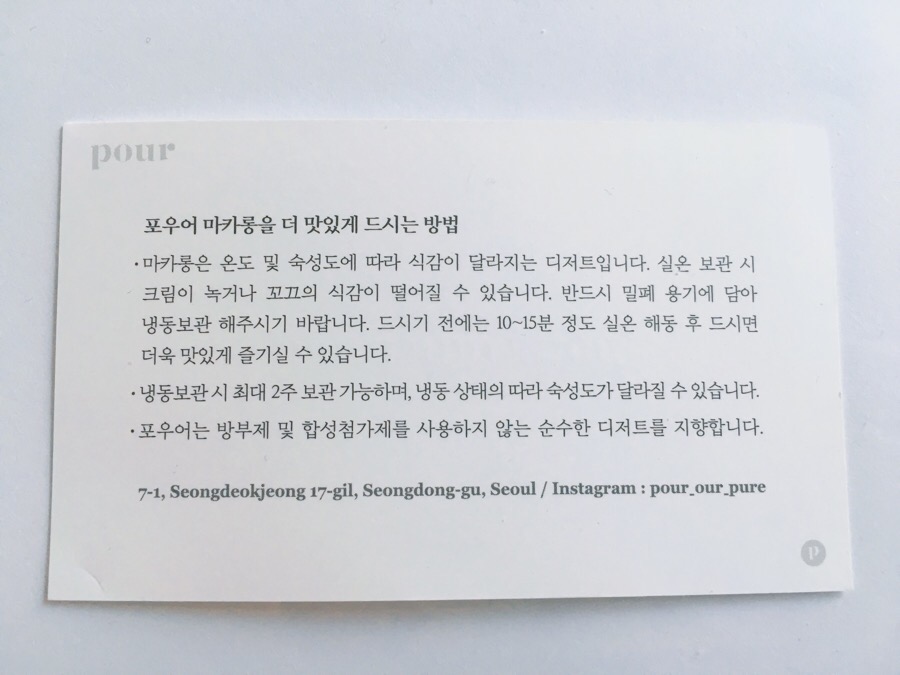 pour
포우어 마카롱을 더 맛있게 드시는 방법
· 마카롱은 온도 및 숙성도에 따라 식감이 달라지는 디저트입니다. 실온 보관 시
크림이 녹거나 꼬끄의 식감이 떨어질 수 있습니다. 반드시 밀폐 용기에 담아
냉동보관 해주시기 바랍니다. 드시기 전에는 10~15분 정도 실온 해동 후 드시면
더욱 맛있게 즐기실 수 있습니다.
· 냉동보관 시 최대 2주 보관 가능하며, 냉동 상태의 따라 숙성도가 달라질 수 있습니다.
· 포우어는 방부제 및 합성첨가제를 사용하지 않는 순수한 디저트를 지향합니다.
7-1, Seongdeokjeong 17-gil, Seongdong-gu, Seoul / Instagram : pour_our_pure
p